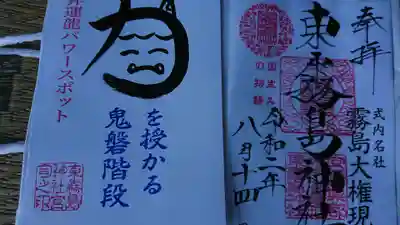 奉拝
式内名社
霧島大権現
東霧島神社
令和二年
八月十四
昇運龍パワースポット
力
を授かる
鬼磐階段